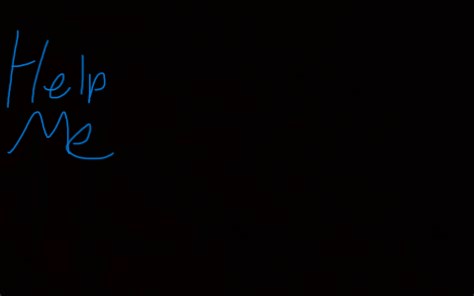 Help
Me